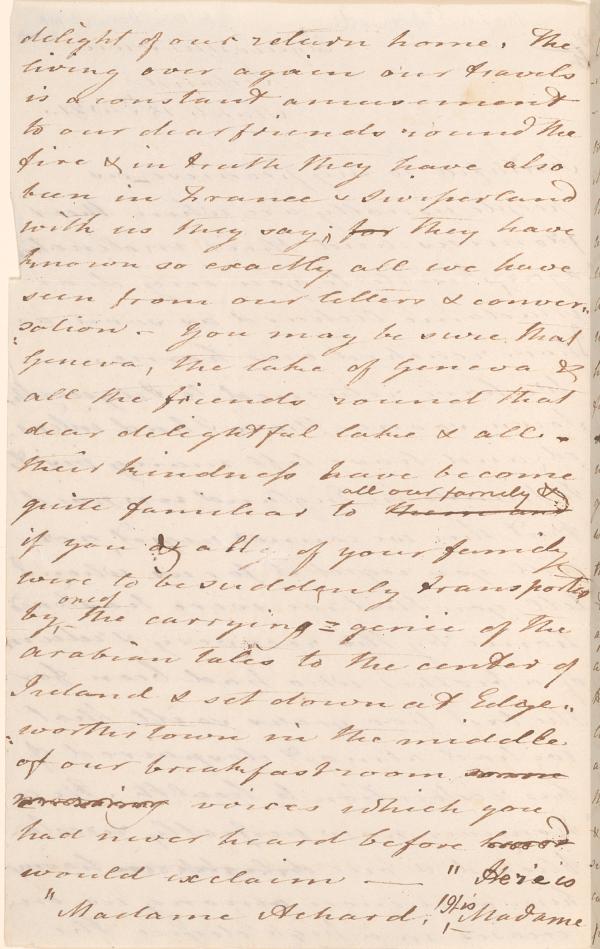 delight of our return home. The
living over again our travels
is a constant amusement
to our dear friends round the
fire & in truth they have also
been in France & Swisserland
with us they say; for they have
known so exactly all we have
seen from our letters & conver-
sation - You may be sure that
Geneva, the lake of Geneva &
all the friends round that
dear delightful lake & all -
their kindness have become
all our family &
quite familiar to them and
if you & all of your family
were to be suddenly transported
one of
by the carrying = genii of the
arabian tales to the center of
Ireland & set down at Edge"
"worthstown in the middle
of our breakfastroom some
morning voices which you
had never heard before heard
would exclaim — " Here is
"Madame Achard. "Madame